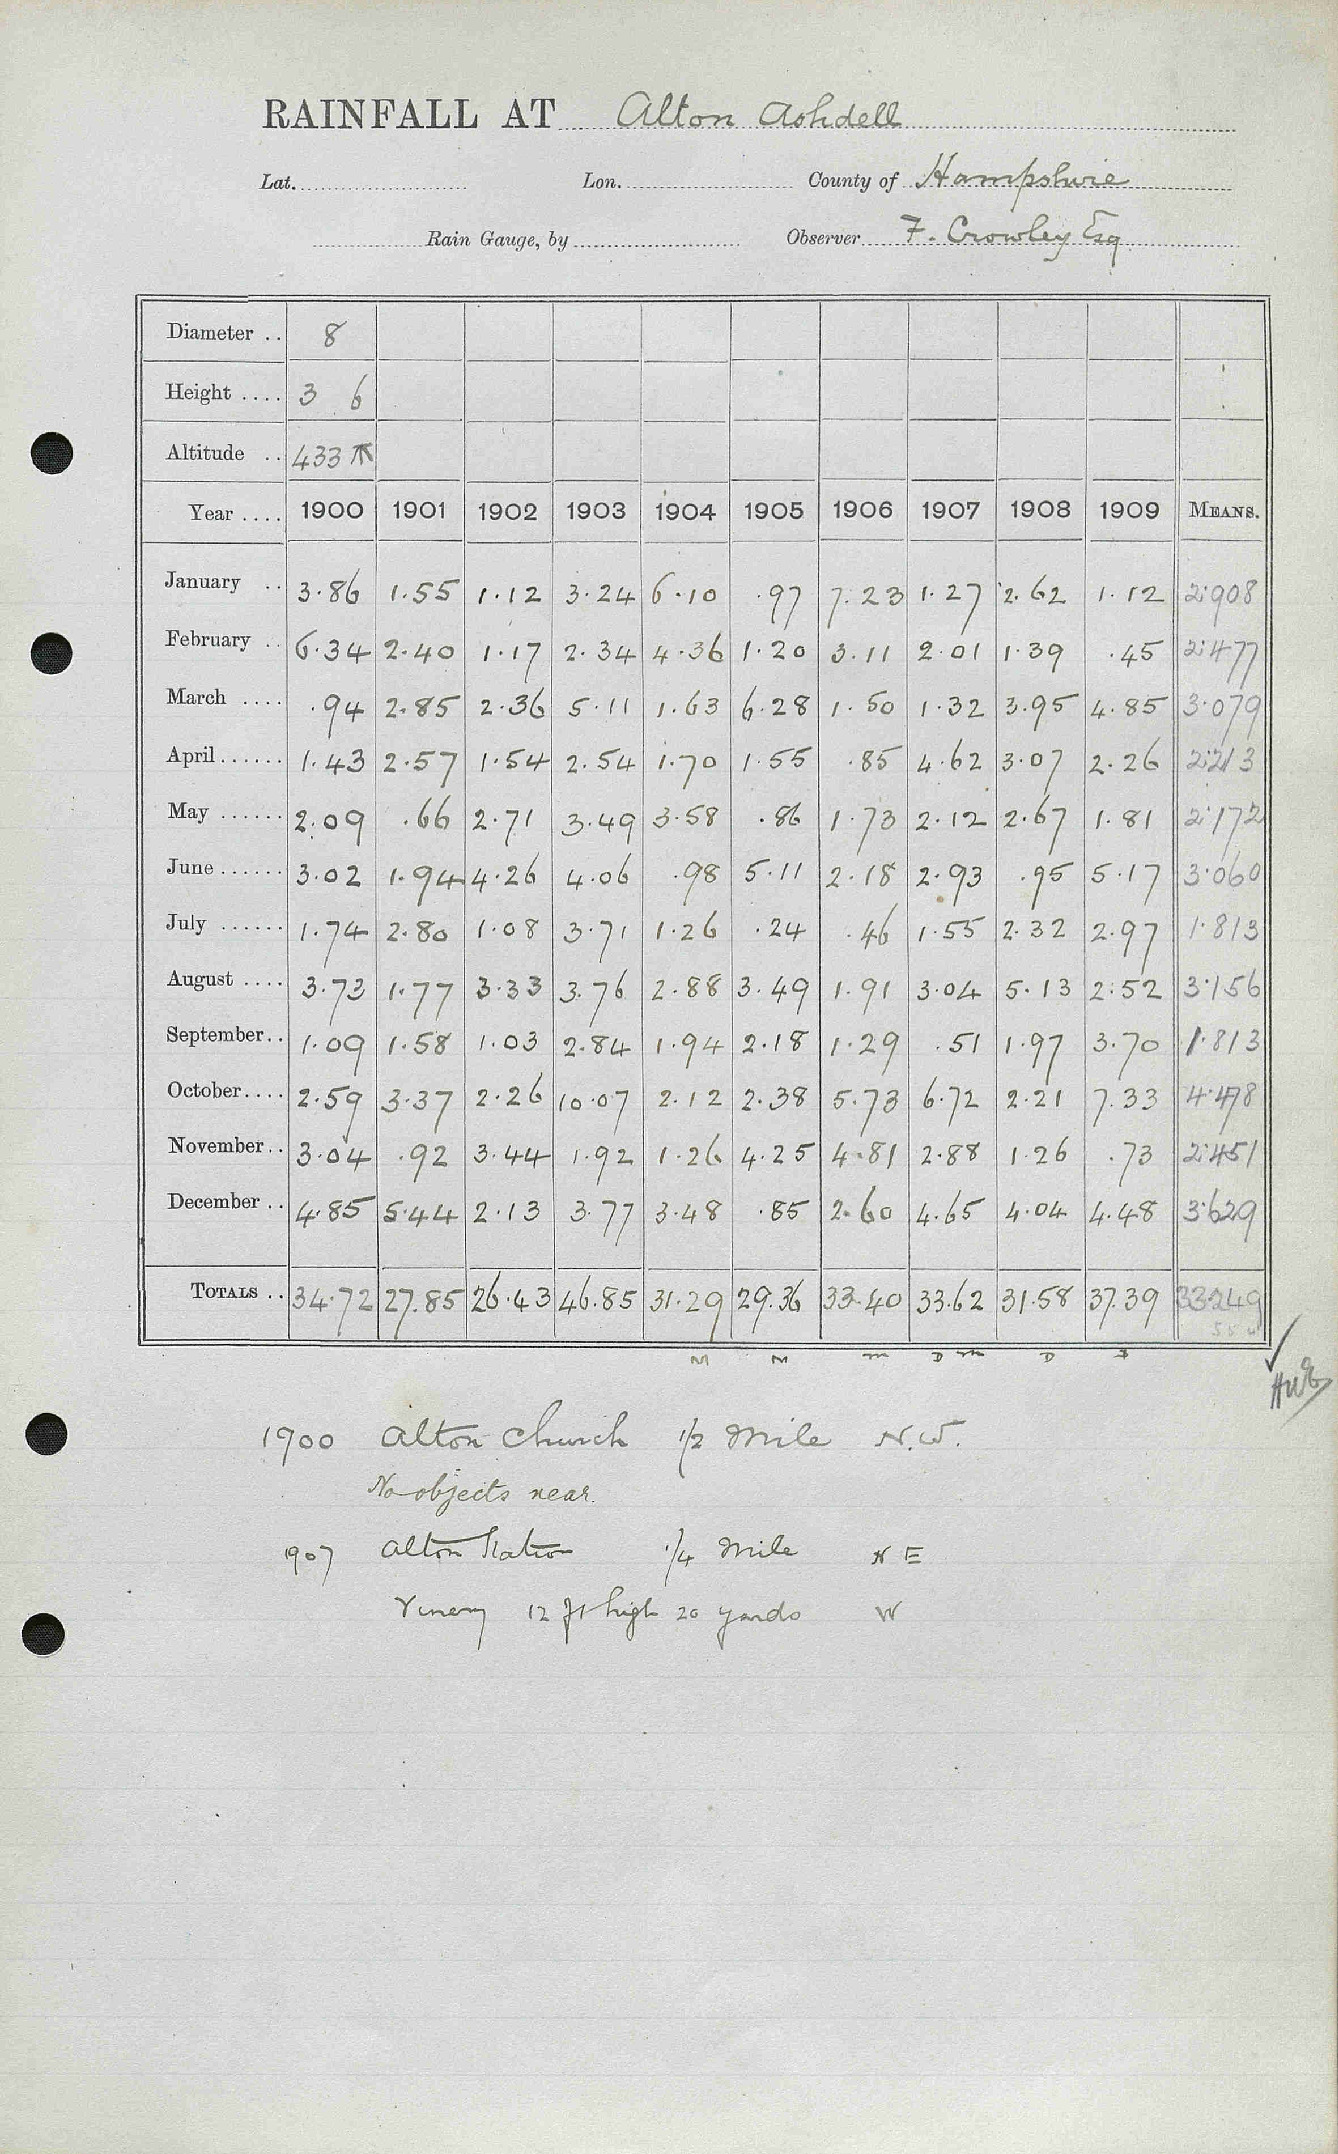 RAINFALL AT Alton Ashdell
Lat. Lon. County of Hampshire
Rain Gauge, by Observer F. Crowley Esq
Diameter .. 8
Height .... 3 6
Altitude .. 433
Year .... 1900 1901 1902 1903 1904 1905 1906 1907 1908 1909 MEANS.
January .. 3.86 1.55 1.12 3.24 6.10 .97 7.23 1.27 2.62 1.12 2.908
February .. 6.34 2.40 1.17 2.34 4.36 1.20 3.11 2.01 1.39 .45 2.477
March .... .94 2.85 2.36 5.11 1.63 6.28 1.50 1.32 3.95 4.85 3.079
April ...... 1.43 2.57 1.54 2.54 1.70 1.55 .85 4.62 3.07 2.26 2.213
May ...... 2.09 .66 2.71 3.49 3.58 .86 1.73 2.12 2.67 1.81 2.172
June ...... 3.02 1.94 4.26 4.06 .98 5.11 2.18 2.93 .95 5.17 3.060
July ...... 1.74 2.80 1.08 3.71 1.26 .24 .46 1.55 2.32 2.97 1.813
August .... 3.73 1.77 3.33 3.76 2.88 3.49 1.91 3.04 5.13 2.52 3.156
September .. 1.09 1.58 1.03 2.84 1.94 2.18 1.29 .51 1.97 3.70 1.813
October .... 2.59 3.37 2.26 10.07 2.12 2.38 5.73 6.72 2.21 7.33 4.478
November .. 3.04 .92 3.44 1.92 1.26 4.25 4.81 2.88 1.26 .73 2.451
December .. 4.85 5.44 2.13 3.77 3.48 .85 2.60 4.65 4.04 4.48 3.629
TOTALS .. 34.72 27.85 26.43 46.85 31.29 29.36 33.40 33.62 31.58 37.39 33.249
1900 Alton Church 1/2 Mile N.W.
No objects near.
1907 Alton Station 1/4 Mile N E
Vinery 12 ft high 20 yards W